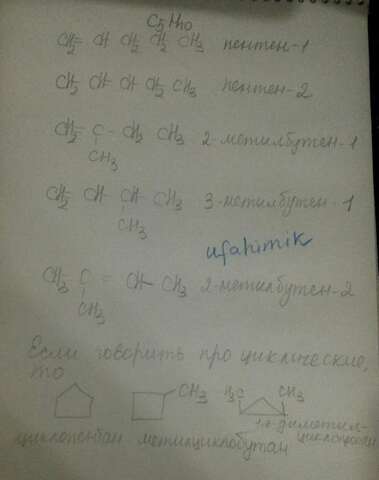 C5H10
CH2= CH CH2 CH2 CH3 пентен-1
CH3 CH CH CH2 CH3 пентен-2
CH2= C - CH2 CH3 2-метилбутен-1
CH3
CH2 CH CH CH3 3-метилбутен-1
CH3
ufahimik
CH3 C = CH- CH3 2-метилбутен-2
CH3
Если говорить про циклические,
то
CH3 H3C CH3
циклопентан метилциклобутан